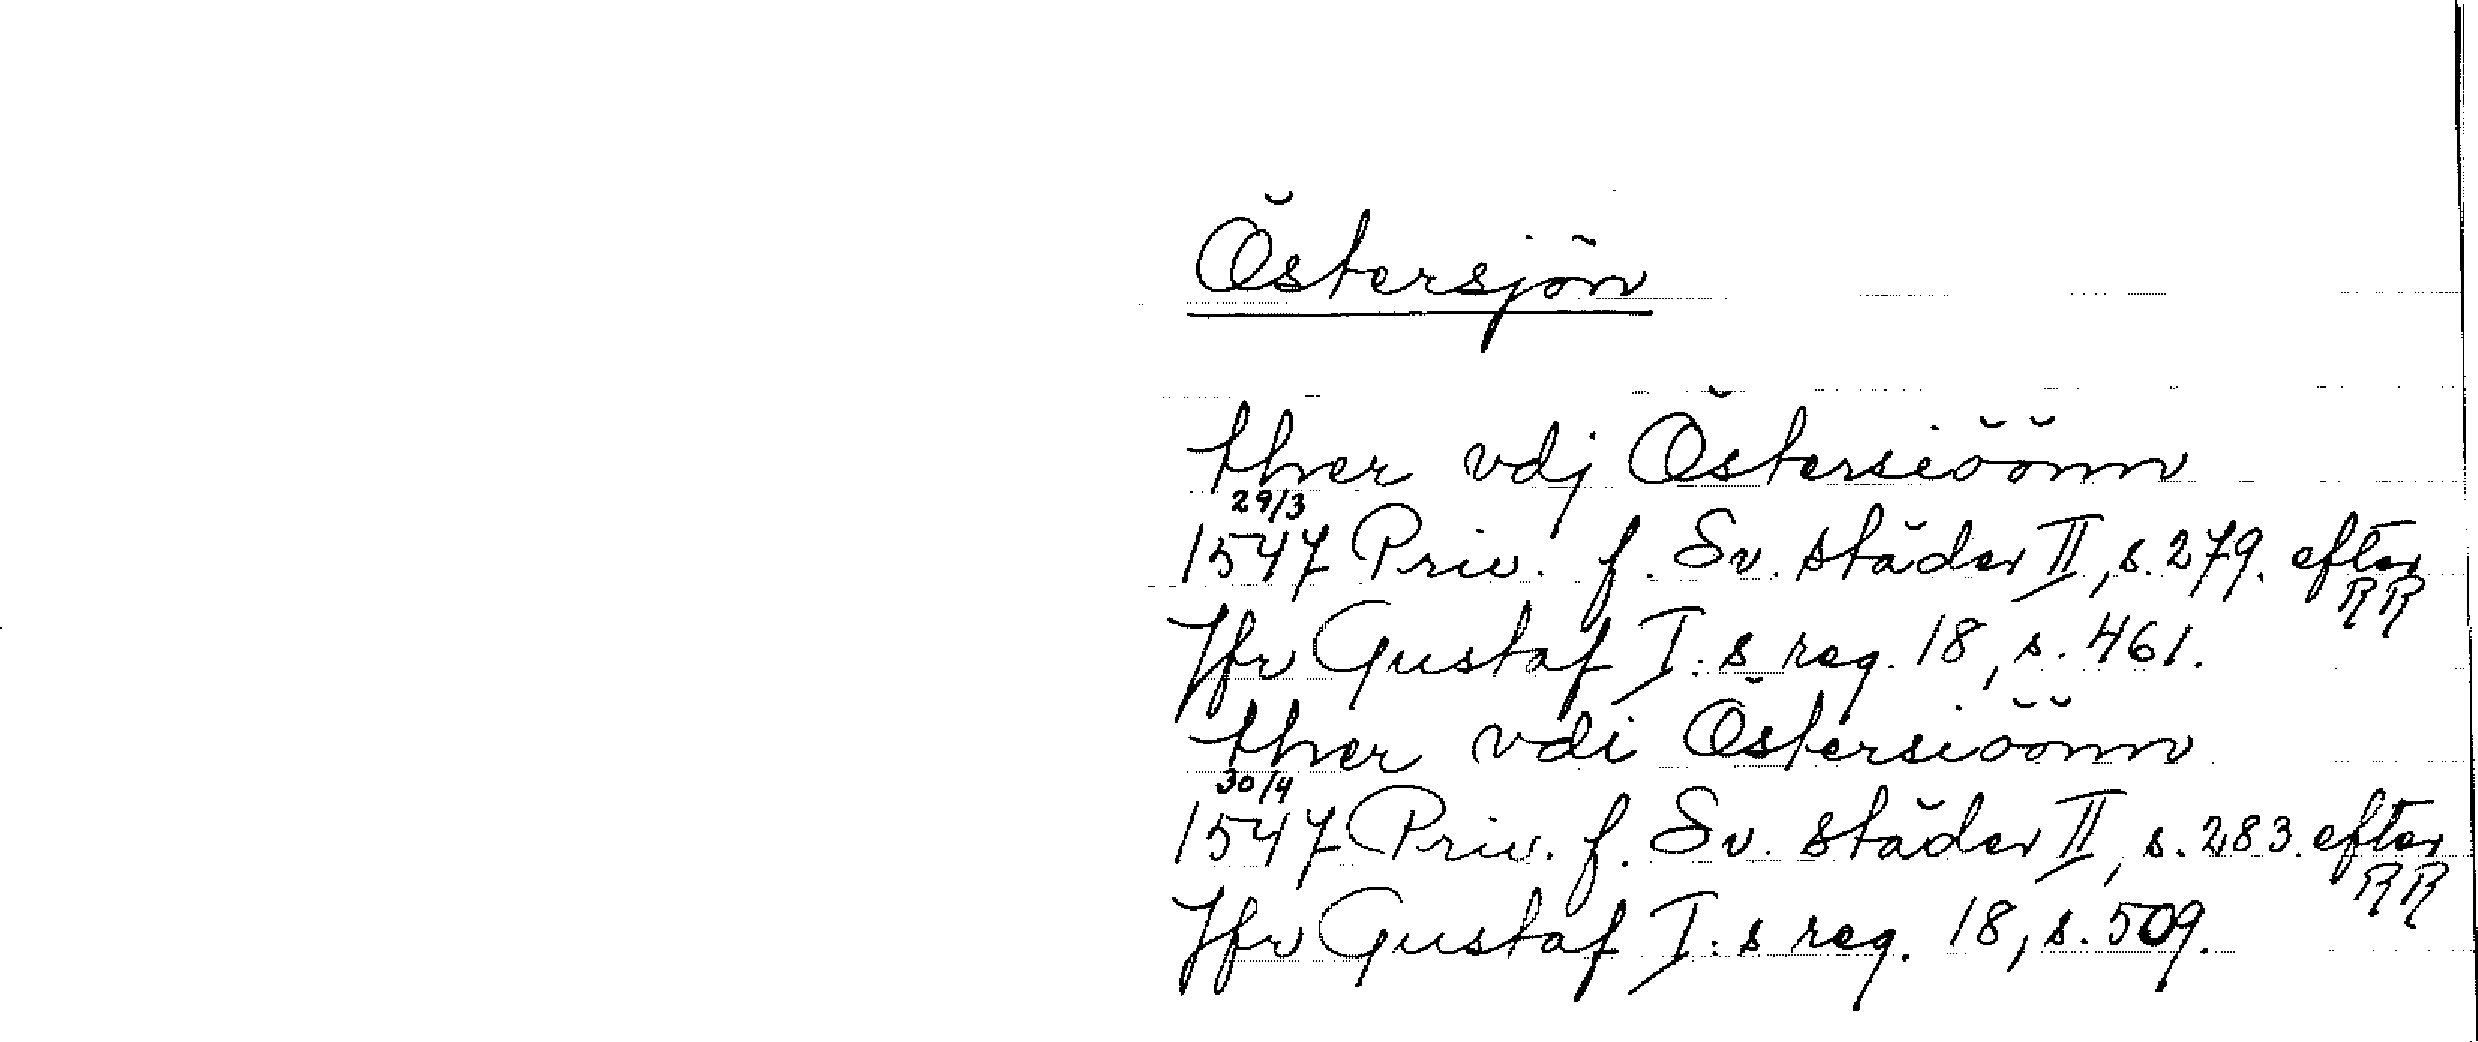 Östersjön
thver vdj Östersiöönn
29/3
1547 Priv. f. Sv. städer II, s. 279. efter RR
Jfr Gustaf I:s reg. 18, s. 461.
thver vdi Östersiöönn
30/4
1547 Priv. f. Sv. städer II, s. 283. efter RR
Jfr Gustaf I:s reg. 18, s. 509.